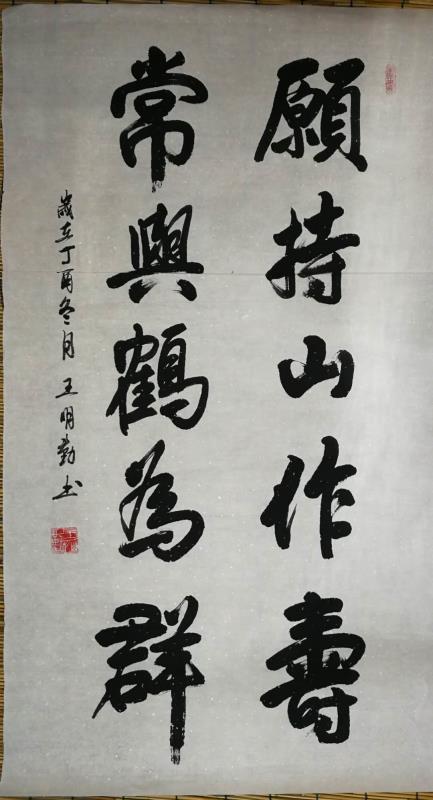 願持山作壽
常與鶴為群
歲在丁酉冬月 王明勤书